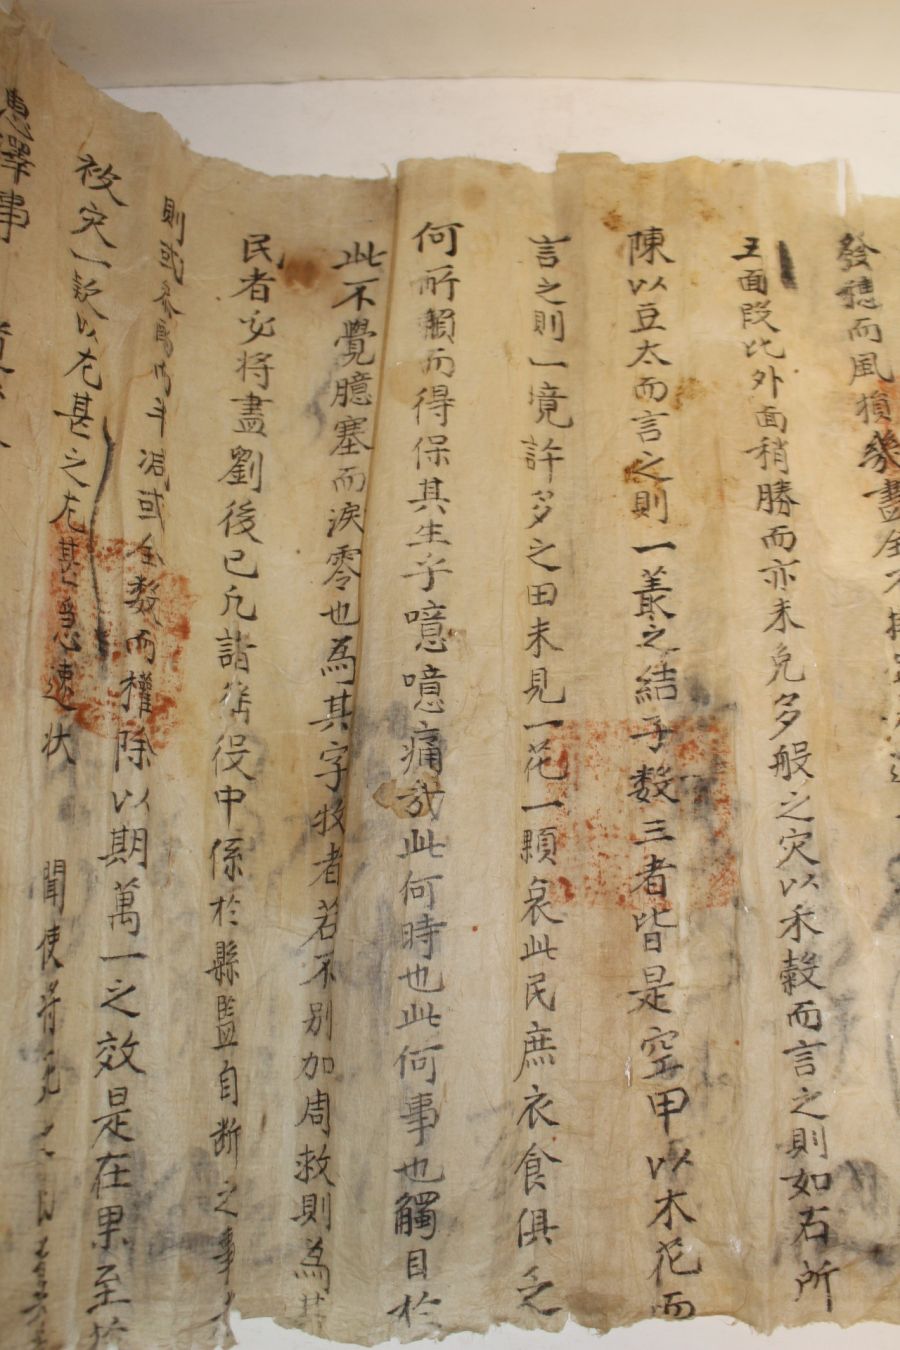 發穗而風損幾盡全不
五面段比外面稍勝而亦未免多般之灾以禾穀而言之則如右所
陳以豆太而言之則一叢之結子数三者皆是空甲以木花而
言之則一境許多之田未見一花一顆哀此民庶衣食俱乏
何所賴而得保其生乎噫噫痛哉此何時也此何事也觸目於
此不覺臆塞而淚零也為其字牧者若不別加周救則為其
民者必將盡劉後已凡諸徭役中係於縣監自断之事
則或參酌量減或全数而權除以期萬一之效是在果至於
被灾一款以尤甚之尤甚急速状聞使
惠澤事